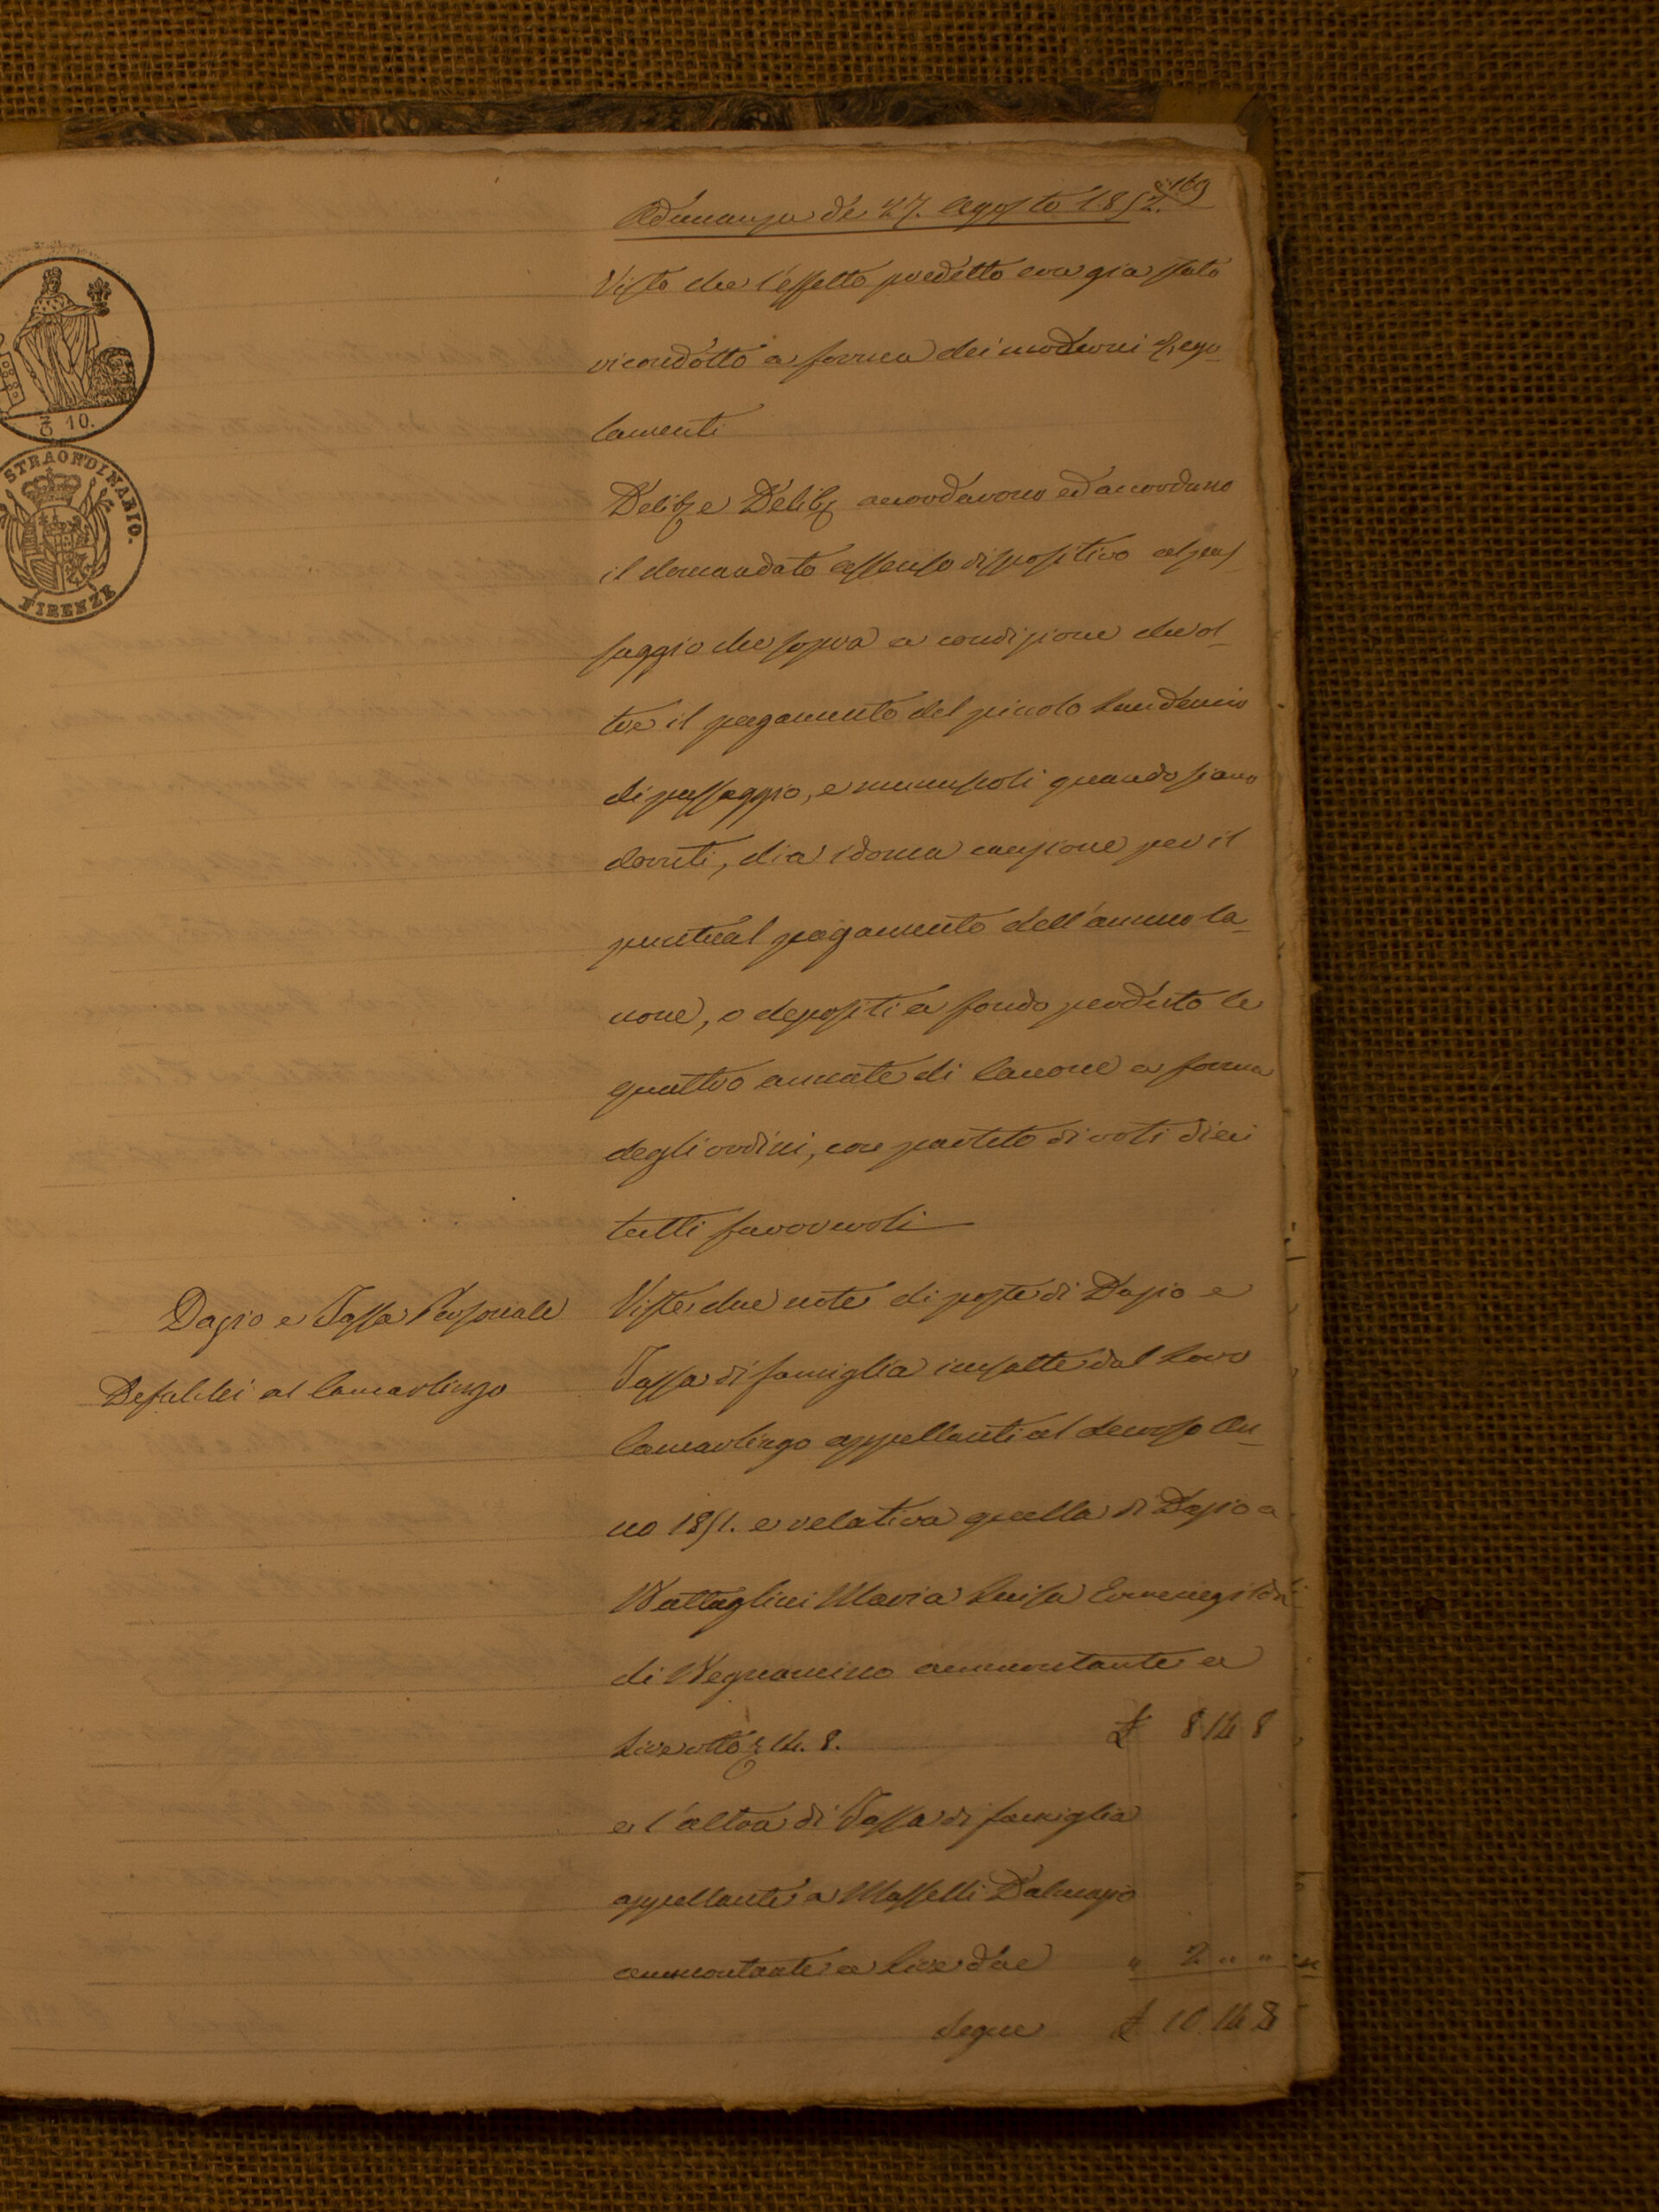 169
Adunanza de 27. Agosto 1852.
Visto che l'effetto predetto era gia stato
ricondotto a forma dei moderni Rego-
lamenti
Delib e Delib accordavono ed accordano
il domandato assenso dispositivo al pas-
saggio che sopra a condizione che ol-
tre il pagamento del piccolo Laudemio
di passaggio, e manuscoli quando siano
dovuti, dia idonea cauzione per il
puntual pagamento dell'annuo ca-
none, o depositi a fondo perduto le
quattro annate di canone a forma
degli ordini, con partito di voti dieci
tutti favorevoli
Dazio e Tassa Personale
Defalchi al Camarlingo
Viste due note di poste di Dazio e
Tassa di famiglia inesatte dal Loro
Camarlingo appellanti al decorso An-
no 1851. e relativa quella di Dazio a
Battaglini Maria Luisa Ermenegild
di Begnamino ammontante a
Lire otto 14. 8. £ 8 14 8
e l'altra di Tassa di famiglia
appellante a Masselli Dalmazio
ammontante a Lire due " 2 " "
Segue £ 10 14 8
10.
STRAORDINARIO.
FIRENZE